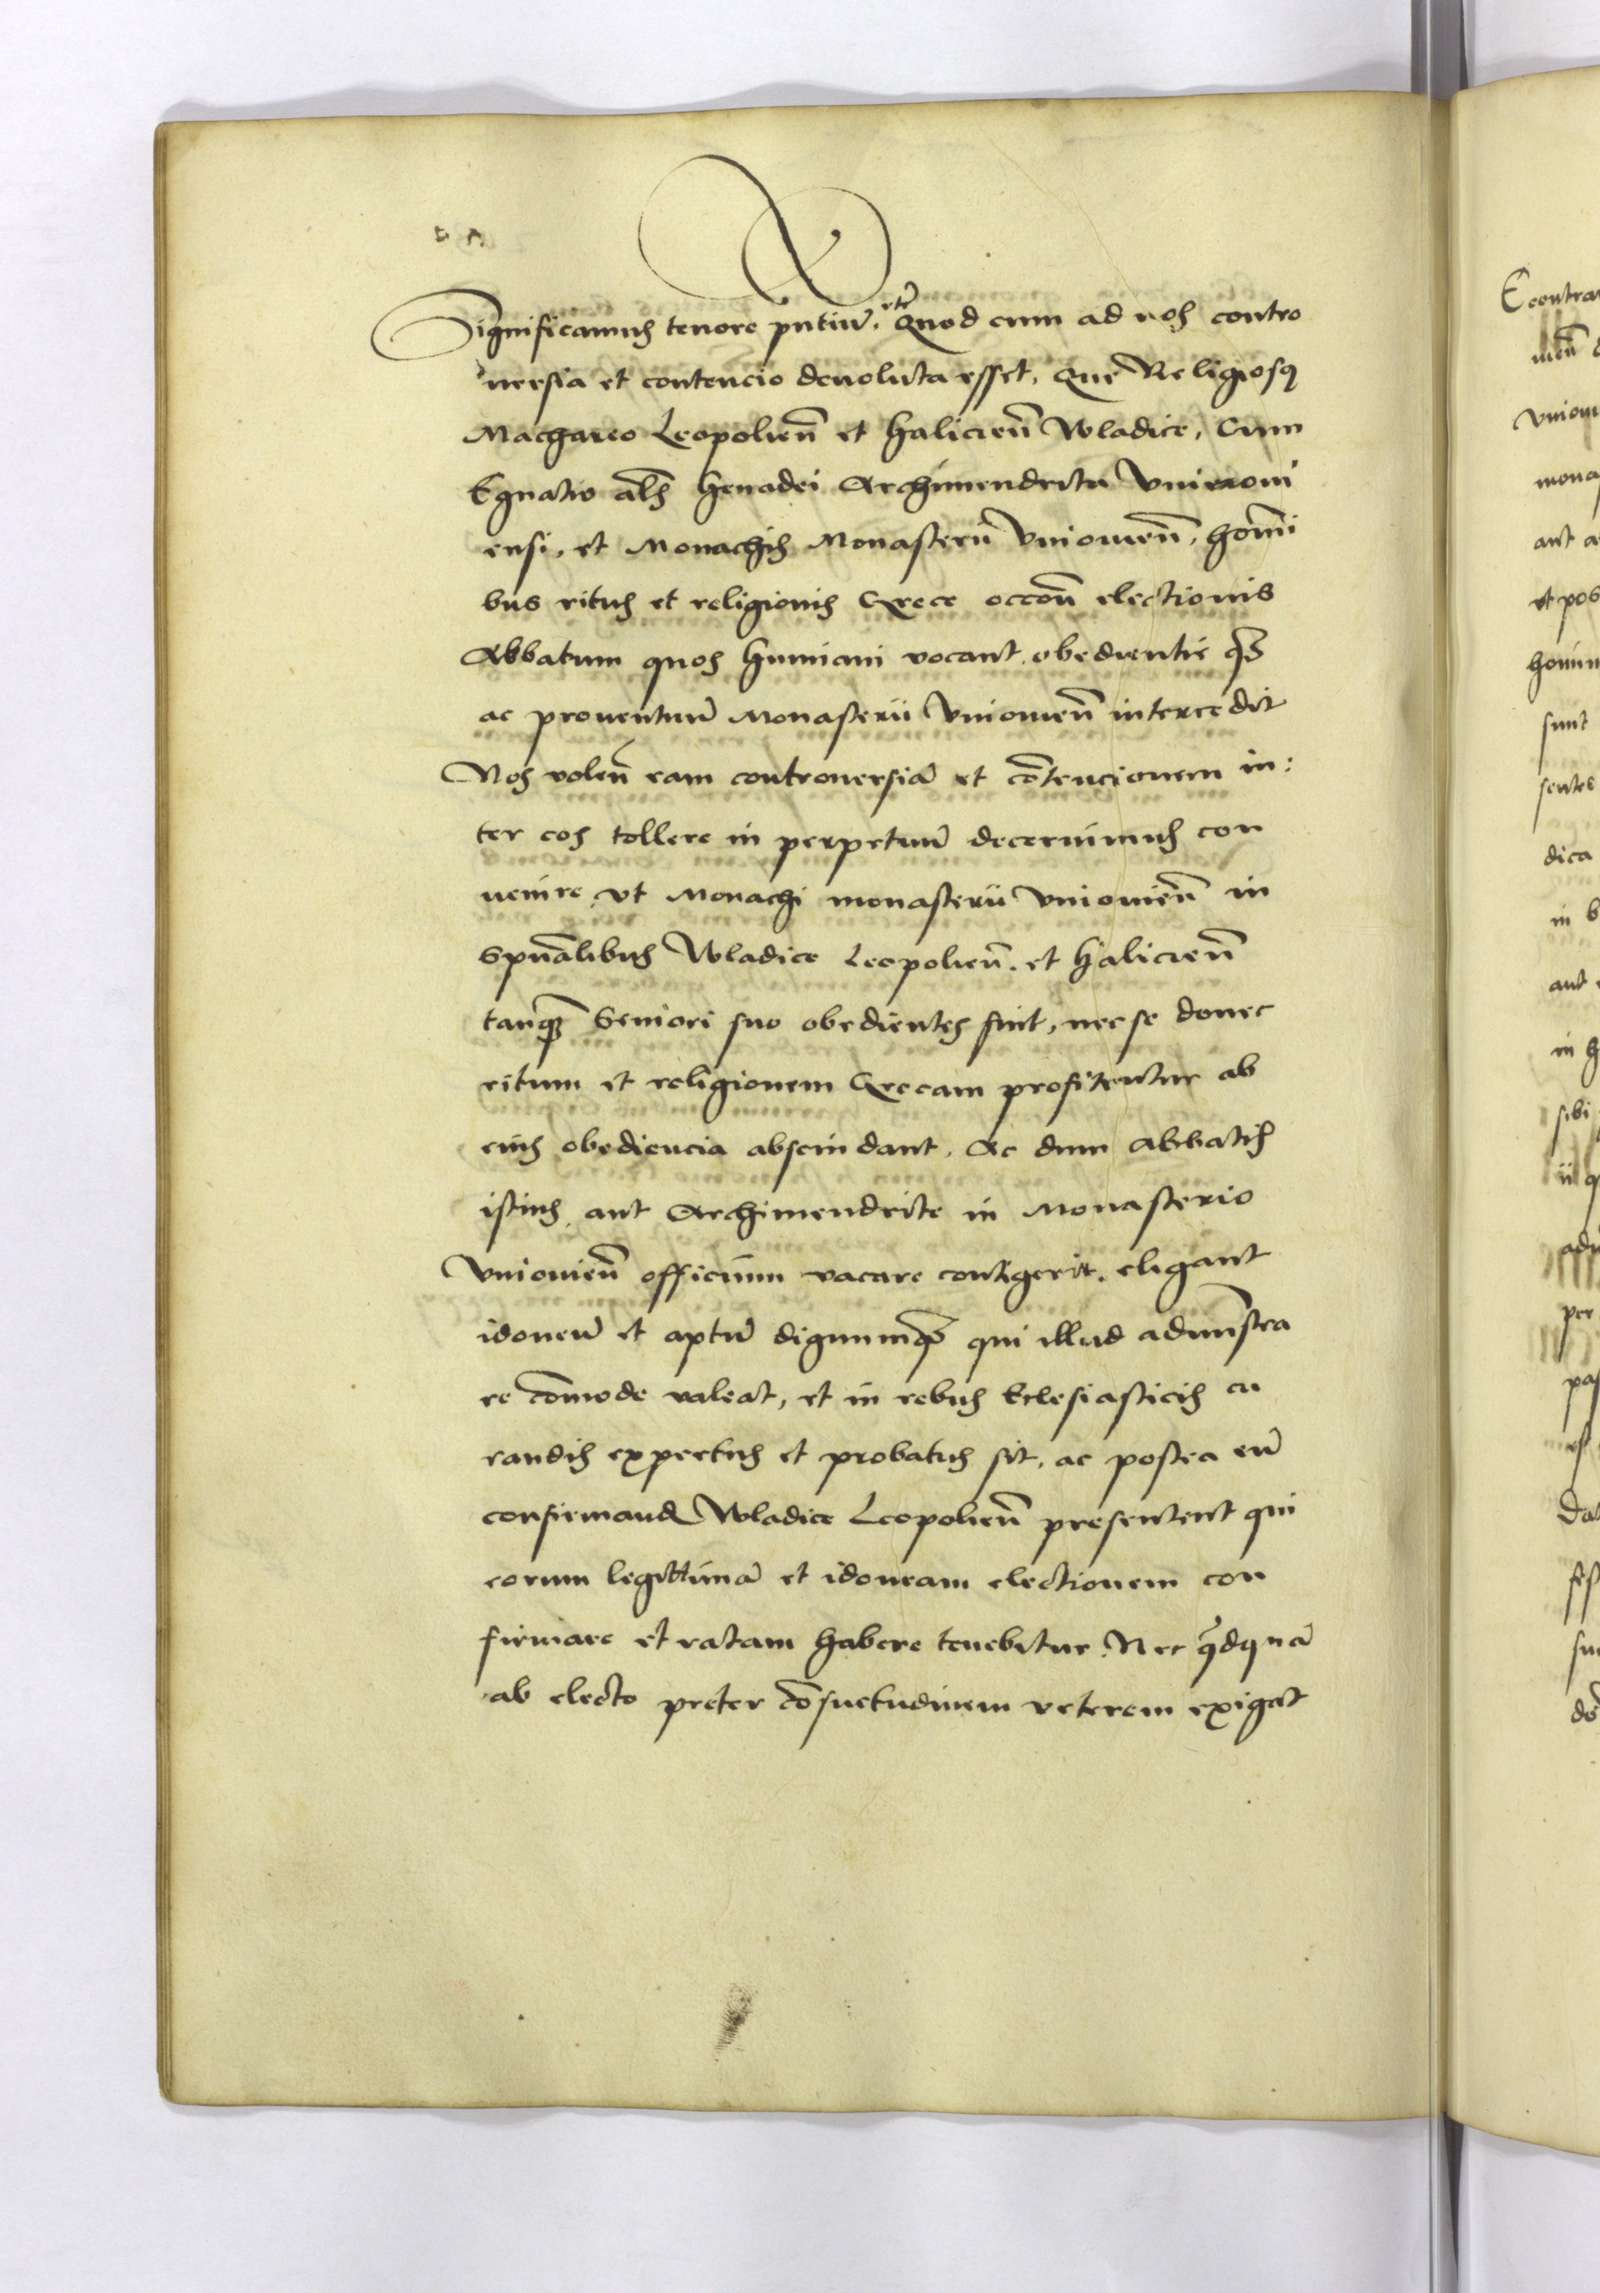 Significamus tenore pñtiũ. etc̃ Quod cum ad nos contro
uersia et contencio deuoluta esset, que Religioso
Machareo Leopolien̄ et Halicien̄ Wladice, Cum
Egnatio als Henadei Archimendrita Vnieioui
ensi, et Monachis Monasterii Vniouien̄, homi
bus ritus et religionis Grece occoñ electionis
Abbatum quos humieni vocant, obedientie qz
ac prouentuũ Monasterii Vniouien̄ intercedit
Nos volen̄ eam controuersiã et cõtencionem in:
ter eos tollere in perpetuũ decernimus con
uenire, vt Monachi monasterii Vniouien̄ in
Spũalibus Wladice Leopolien̄. et Halicien̄
tanqz Seniori suo obedientes sint, nec se donec
ritum et religionem Grecam profitentur ab
eius obediencia abscindant. Ac dum Abbatis
istius aut Archimendrite in Monasterio
Vniouien̄ officium vacare contigerit. eligant
idoneũ et aptũ dignumqz qui illud admĩstra
re cõmode valeat, et in rebus Eclesiasticis cu
randis expertus et probatus sit, ac postea eũ
confirmand Wladice Leopolien̄ presentent qui
eorum legittimã et idoneam electionem con
firmare et ratam habere tenebitur. Nec qdquã
ab electo preter cõsuetudinem veterem exigat